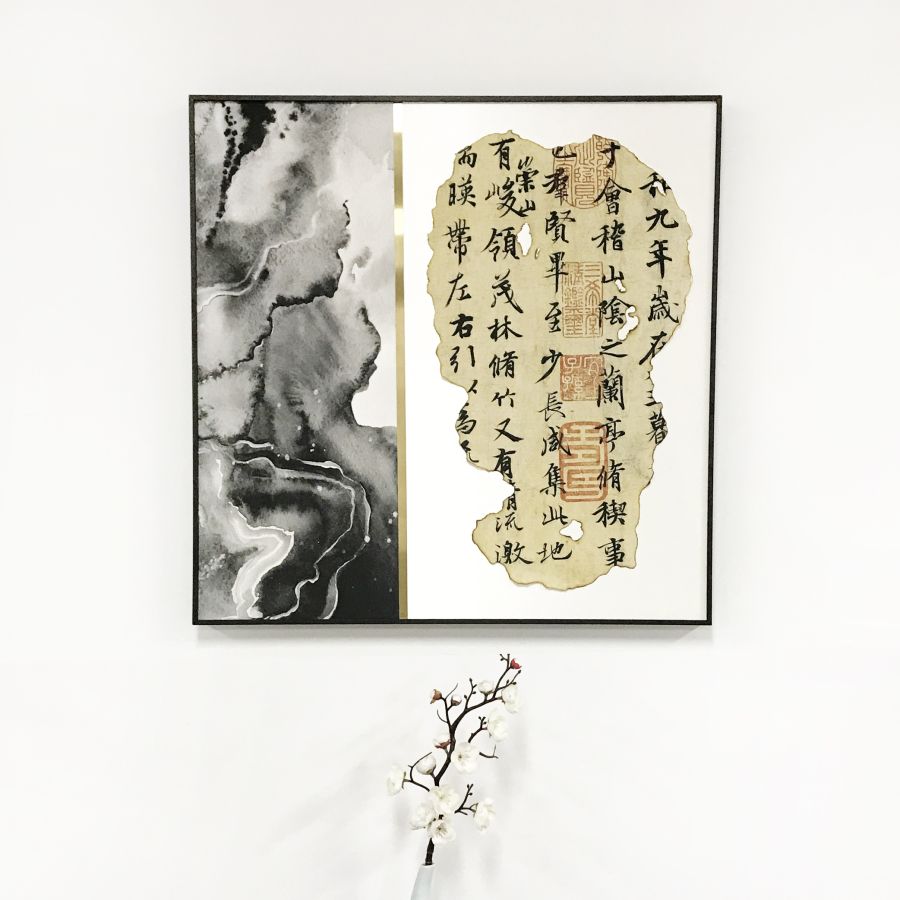 和九年歲在暮
于會稽山陰之蘭亭脩稧事
也羣賢畢至少長咸集此地
有崇山峻領茂林脩竹又有清流激
暎帶左右引以為